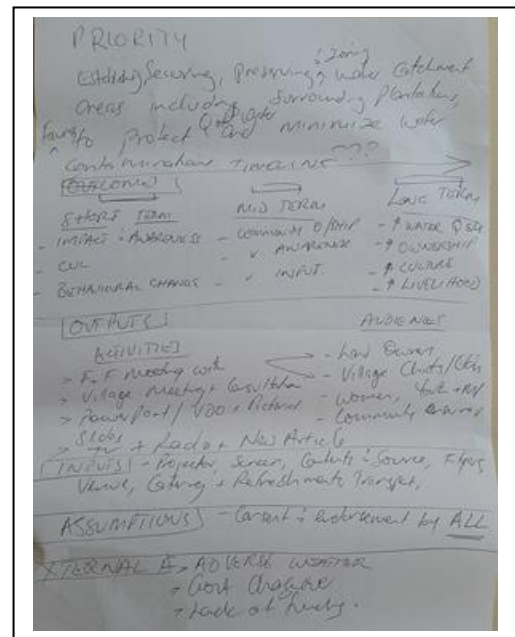 PRIORITY
: Zoning
Establishing, Securing, Preserving, water Catchment
areas including surrounding Plantations,
Fauna to Protect Q of Water and minimize water
Contamination TIMELINE ???
OUTCOMES
SHORT TERM
- IMPACT : AWARENESS
- CUL
- BEHAVIOURAL CHANGE
MID TERM
- COMMUNITY O/SHIP
- ✓ AWARENESS
- ✓ INPUT
LONG TERM
- ↑ WATER Q
- ↑ OWNERSHIP
- ↑ CULTURE
- ↑ LIVELIHOOD
OUTPUTS
ACTIVITIES
> F.F meeting with
> Village meeting + Consultation
> PowerPoint / VDO + Pictorial
Slides
> TV + Radio + News Article
AUDIENCES
- Land Owners
- Village Chiefs /
- Women, Youth +
- Community
INPUTS - Projector, Screen, Contents : Source, Flyers
Venue, Catering + Refreshments Transport,
ASSUMPTIONS - Consent : Endorsement by ALL
XTERNAL > ADVERSE WEATHER
> Govt Change
> Lack of funding.